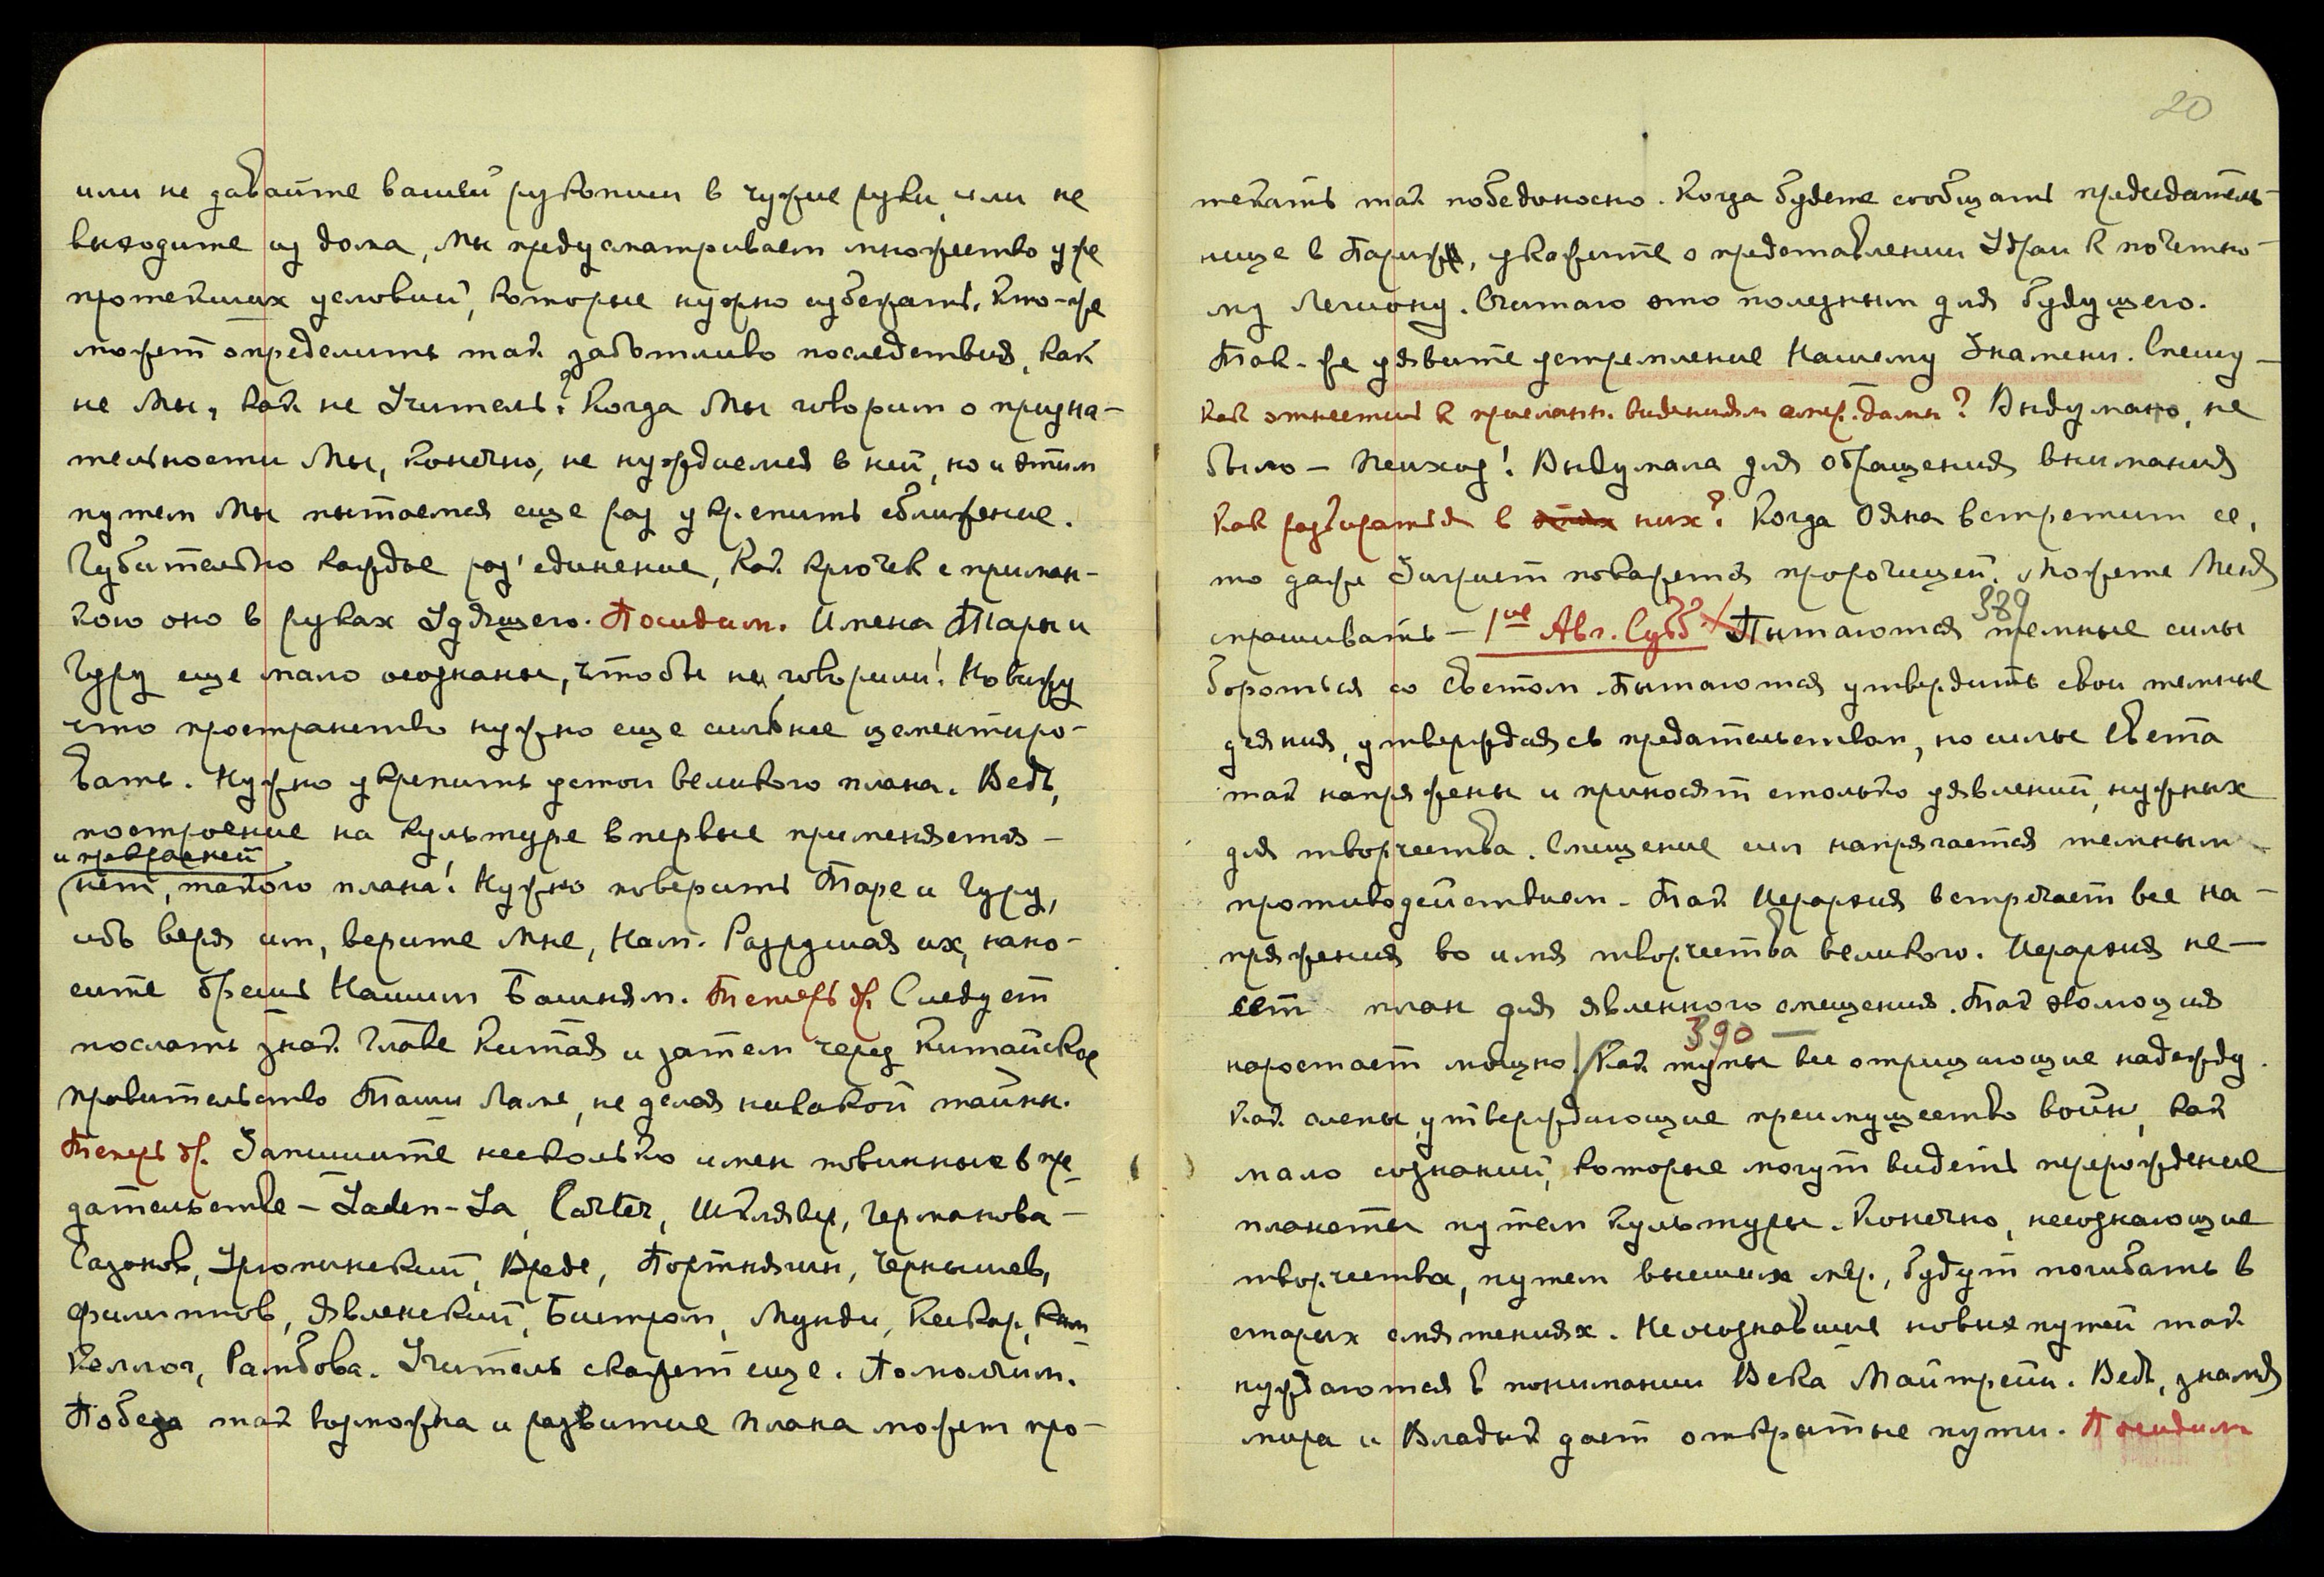 или не давайте вашей рукописи в чужие руки, или не
выходите из дома, Мы предусматриваем множество уже
протекших условий, которые нужно избежать. Кто-же
может определить так заботливо последствия, как
не Мы, как не Учитель? Когда Мы говорим о призна-
тельности Мы, конечно, не нуждаемся в ней, но и этим
путем Мы пытаемся еще раз укрепить сближение.
Губительно каждое раз'единение, как крючек с приман-
кою оно в руках Удящего. Посидим. Имена Тары и
Гуру еще мало осознаны, чтобы ни говорили! Но вижу
что пространство нужно еще сильнее цементиро-
вать. Нужно укрепить устои великого плана. Ведь,
построение на культуре впервые применяется —
и прекрасней
нет, такого плана! Нужно поверить Таре и Гуру,
ибо веря им, верите Мне, Нам. Разрушая их, нано-
сите брешь Нашим Башням. Теперь др. Следует
послать знак Главе Китая и затем через Китайское
правительство Таши Ламе, не делая никакой тайны.
Теперь др. Запишите несколько имен повинные в пре-
дательстве — Laden-La, Carter, Шклявер, Германова —
Сазонов, Урюпинский, Вреде, Портнягин, Чернышев,
Филиппов, Явленский, Бистром, Мунди, Кескар,
Келлог, Рамбова. Учитель скажет еще. Помолчим.
Победа так возможна и развитие плана может про-
20
текать так победоносно. Когда будете сообщать председатель-
нице в Париж, укажите о представлении Удраи к почетно-
му Легиону. Считаю это полезным для будущего.
Так-же уявите устремление Нашему Знамени. Спешу —
Как отнестись к присланн. видениям амер. дамы? Выдумано, не
было — Психоз! Выдумала для обращения внимания
Как разбираться в этих них? Когда Ояна встретит ее,
то даже Зигрист покажется пророчицей. Можете Меня
спрашивать — 1ое Авг. Субб. 389 Пытаются темные силы
бороться со Светом. Пытаются утвердить свои темные
деяния, утверждаясь предательством, но силы Света
так напряжены и приносят столько уявлений, нужных
для творчества. Смещение сил напрягается темным
противодействием. Так Иерархия встречает все на-
пряжения во имя творчества великого. Иерархия не-
сет план для явленного смещения. Так эволюция
нарастает мощно. 390 — Как тупы все отрицающие надежду.
Как слепы утверждающие преимущество войн, как
мало сознаний, которые могут видеть перерождение
планеты путем культуры. Конечно, несознающие
творчества, путем высших мер, будут погибать в
старых смятениях. Не осознавшие новых путей так
нуждаются в понимании Века Майтрейи. Ведь, знамя
мира и Владык дает открытые пути. Посидим